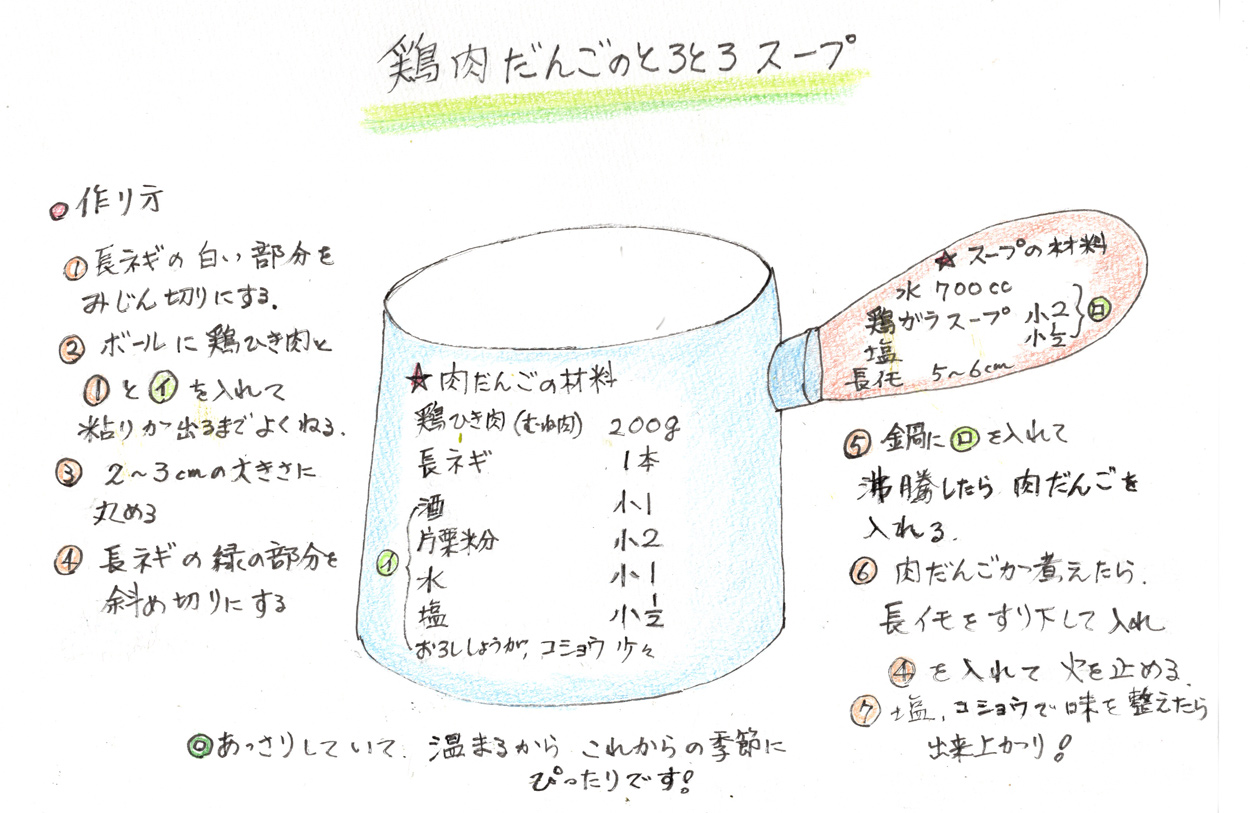 鶏肉だんごのとろとろスープ
作り方
① 長ネギの白い部分を
みじん切りにする.
② ボールに鶏ひき肉と
①と㋑を入れて
粘りが出るまでよくねる.
③ 2~3cmの大きさに
丸める
④ 長ネギの緑の部分を
斜め切りにする
★肉だんごの材料
鶏ひき肉(むね肉) 200g
長ネギ 1本
酒 小1
片栗粉 小2
㋑
水 小1
塩 小1/2
おろししょうが, コショウ 少々
★スープの材料
水 700cc
鶏ガラスープ 小2
塩 小1/2
㋺
長イモ 5~6cm
⑤ 鍋に㋺を入れて
沸騰したら 肉だんごを
入れる.
⑥ 肉だんごが煮えたら.
長イモをすり下して入れ
④を入れて火を止める.
⑦ 塩, コショウで味を整えたら
出来上がり!
◎あっさりしていて. 温まるから これからの季節に
ぴったりです!